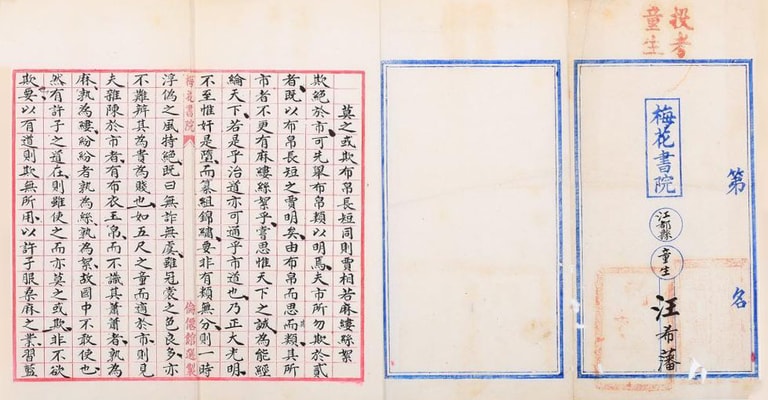 投考
童生
第 名
梅花書院
江都縣
童生
汪希藩
莫之或欺布帛長短同則賈相若麻縷絲絮
欺絕於市可先舉布帛類以明焉夫市所勿欺於貳
者既以布帛長短之賈明矣由布帛而思而類其所
市者不更有麻縷絲絮乎嘗思惟天下之誠為能經
綸天下若是乎治道亦可通乎市道也乃正大光明
不至惟奸是而纂組錦繡要非有類無分則一時
梅花書院
館選製
浮偽之風持絕既曰無詐無虞雖冠裳之色良多亦
不難辨其為貴為賤也如五尺之童而適於市則見
夫雜陳於市者有布衣玉帛而不識其蕭蕭者孰為
麻孰為縷紛紛者孰為絲孰為絮故國中不敢使也
然有許子之道在則雖使之而亦莫之或欺非不欲
欺要以有道則欺無所用以許子服桑麻之業習藍